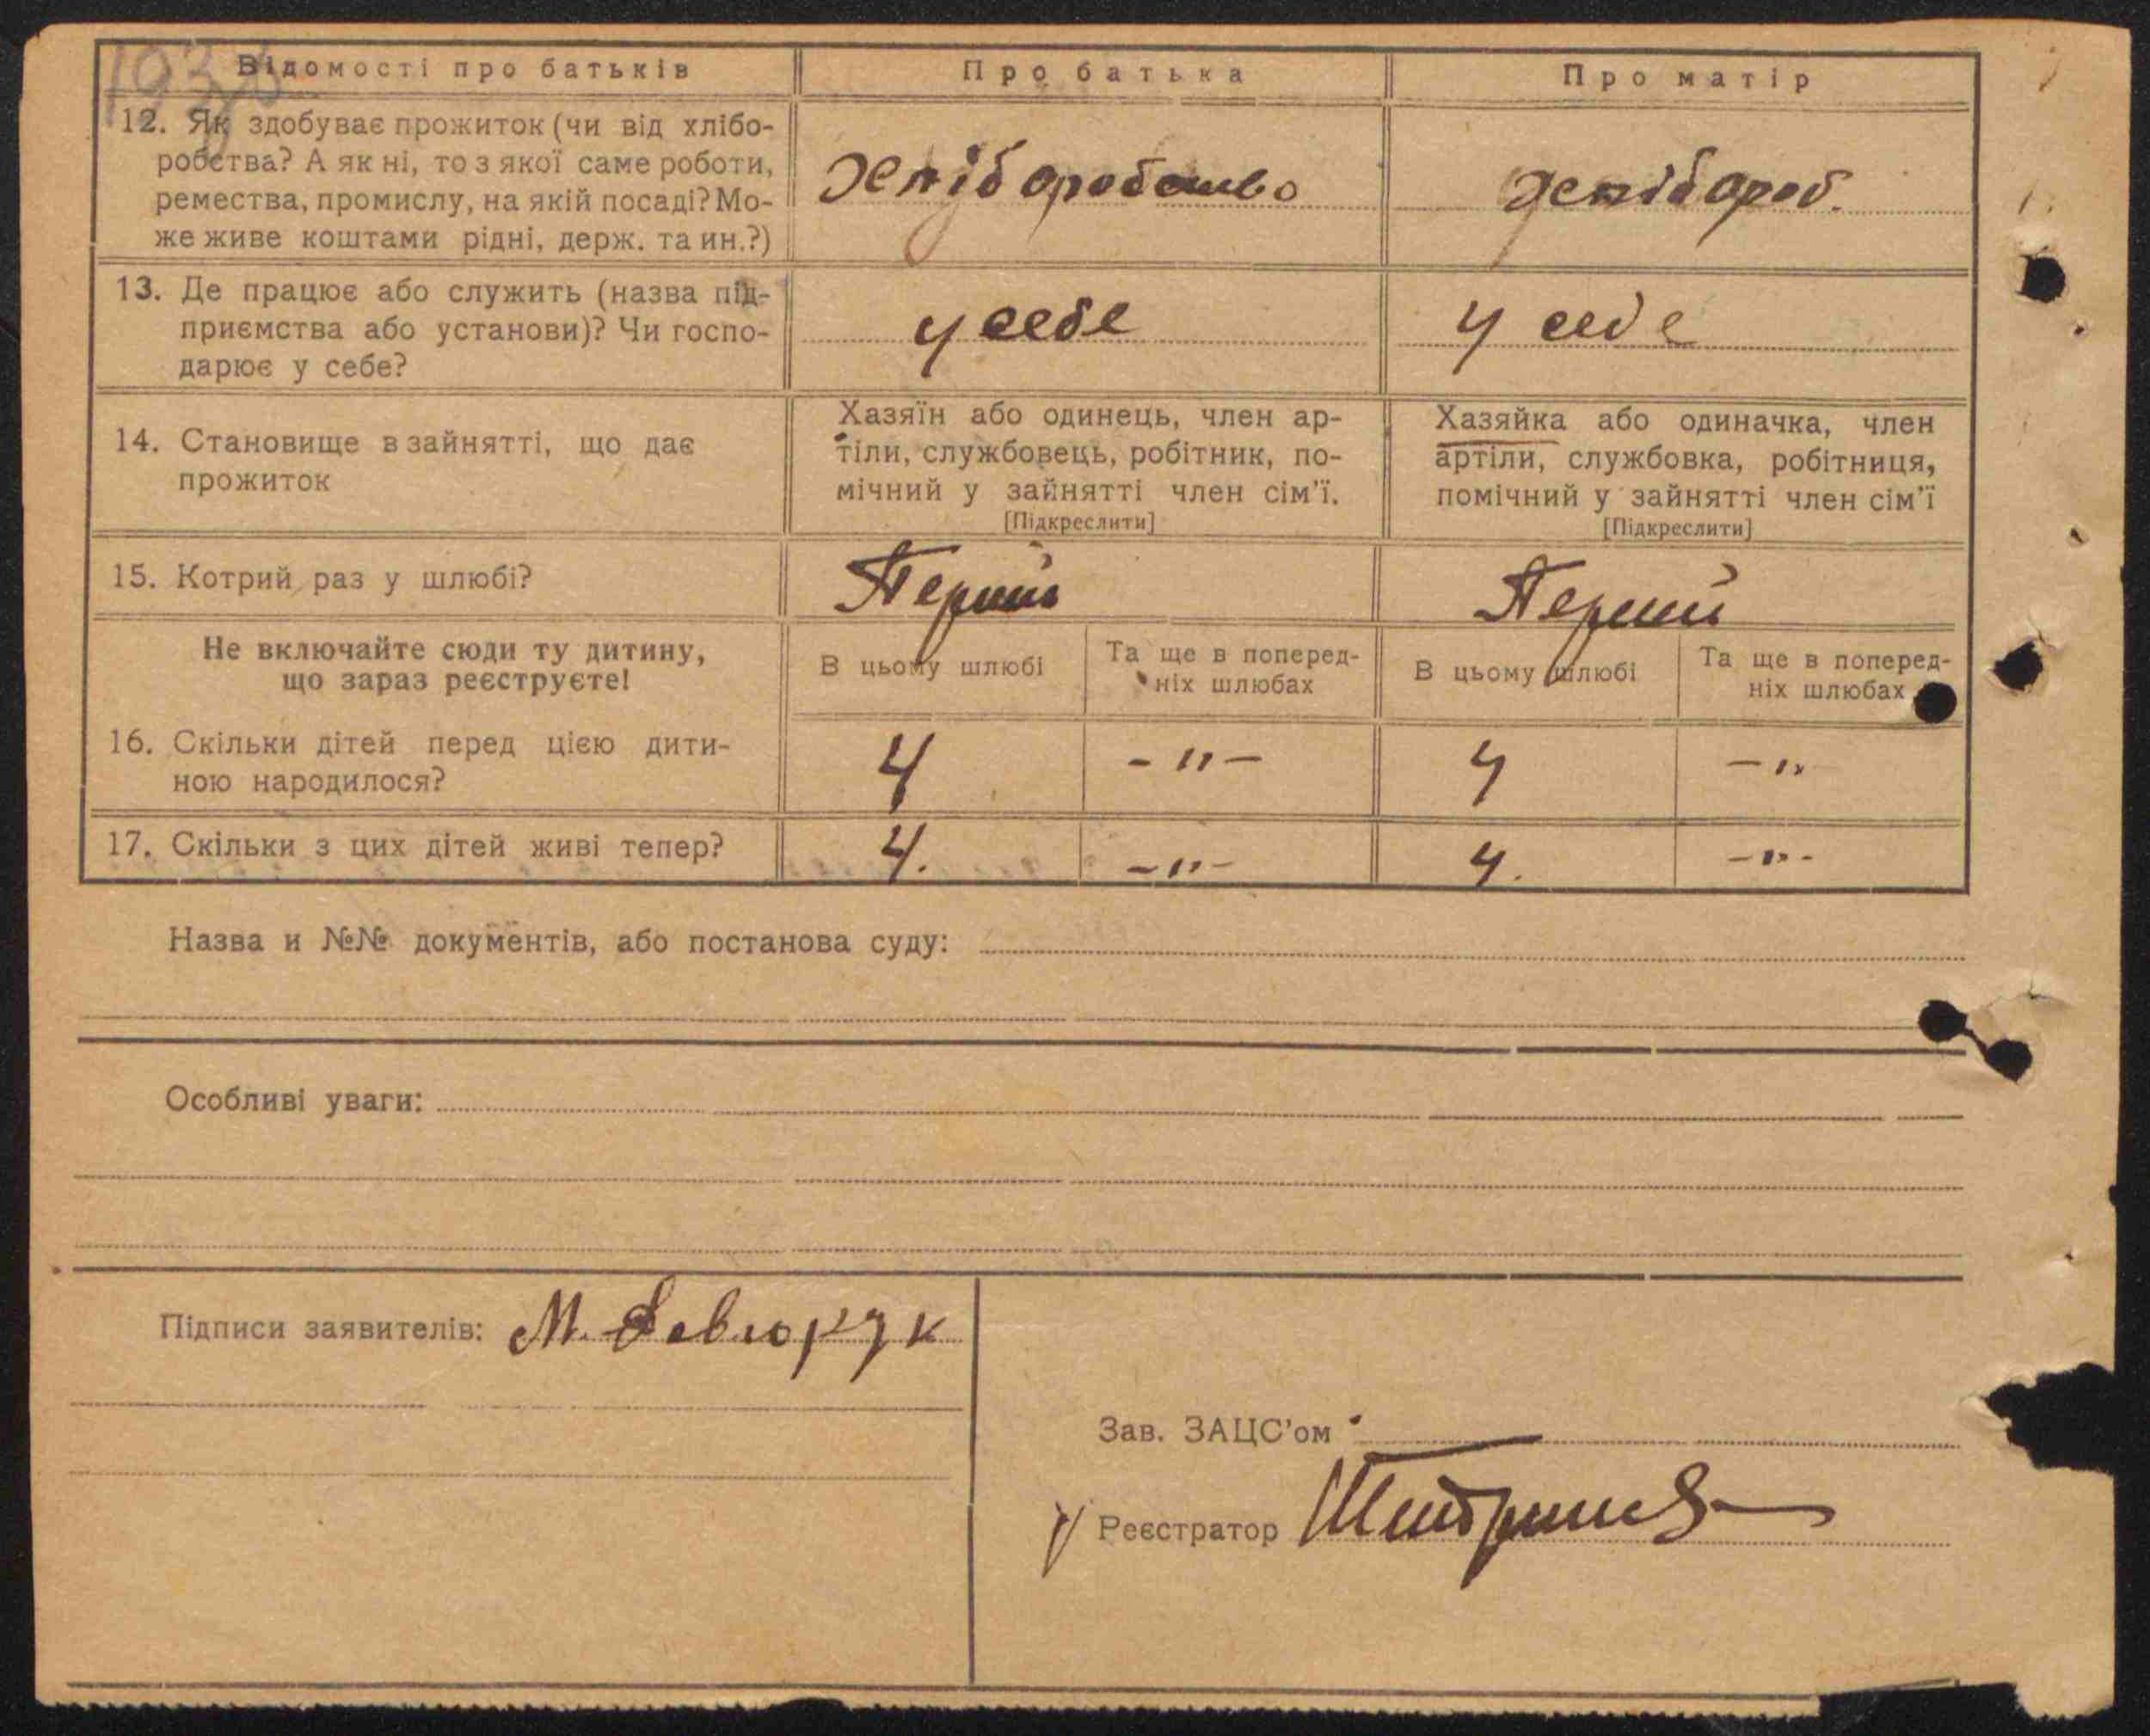 Відомості про батьків
Про батька
Про матір
12. Як здобуває прожиток (чи від хлібо-
робства? А як ні, то з якої саме роботи,
ремества, промислу, на якій посаді? Мо-
же живе коштами рідні, держ. та ин.?)
Хліборобство
хлібороб.
13. Де працює або служить (назва під-
приємства або установи)? Чи госпо-
дарює у себе?
у себе
у себе
14. Становище в зайнятті, що дає
прожиток
Хазяїн або одинець, член ар-
тіли, службовець, робітник, по-
мічний у зайнятті член сім'ї.
[Підкреслити]
Хазяйка або одиначка, член
артіли, службовка, робітниця,
помічний у зайнятті член сім'ї
[Підкреслити]
15. Котрий раз у шлюбі?
Перший
Перший
Не включайте сюди ту дитину,
що зараз реєструєте!
В цьому шлюбі
Та ще в поперед-
ніх шлюбах
В цьому шлюбі
Та ще в поперед-
ніх шлюбах
16. Скільки дітей перед цією дити-
ною народилося?
4
-"-
4
-"
17. Скільки з цих дітей живі тепер?
4.
-"-
4.
-"-
Назва и №№ документів, або постанова суду:
Особливі уваги:
Підписи заявителів: М.
Зав. ЗАЦС'ом
Реєстратор